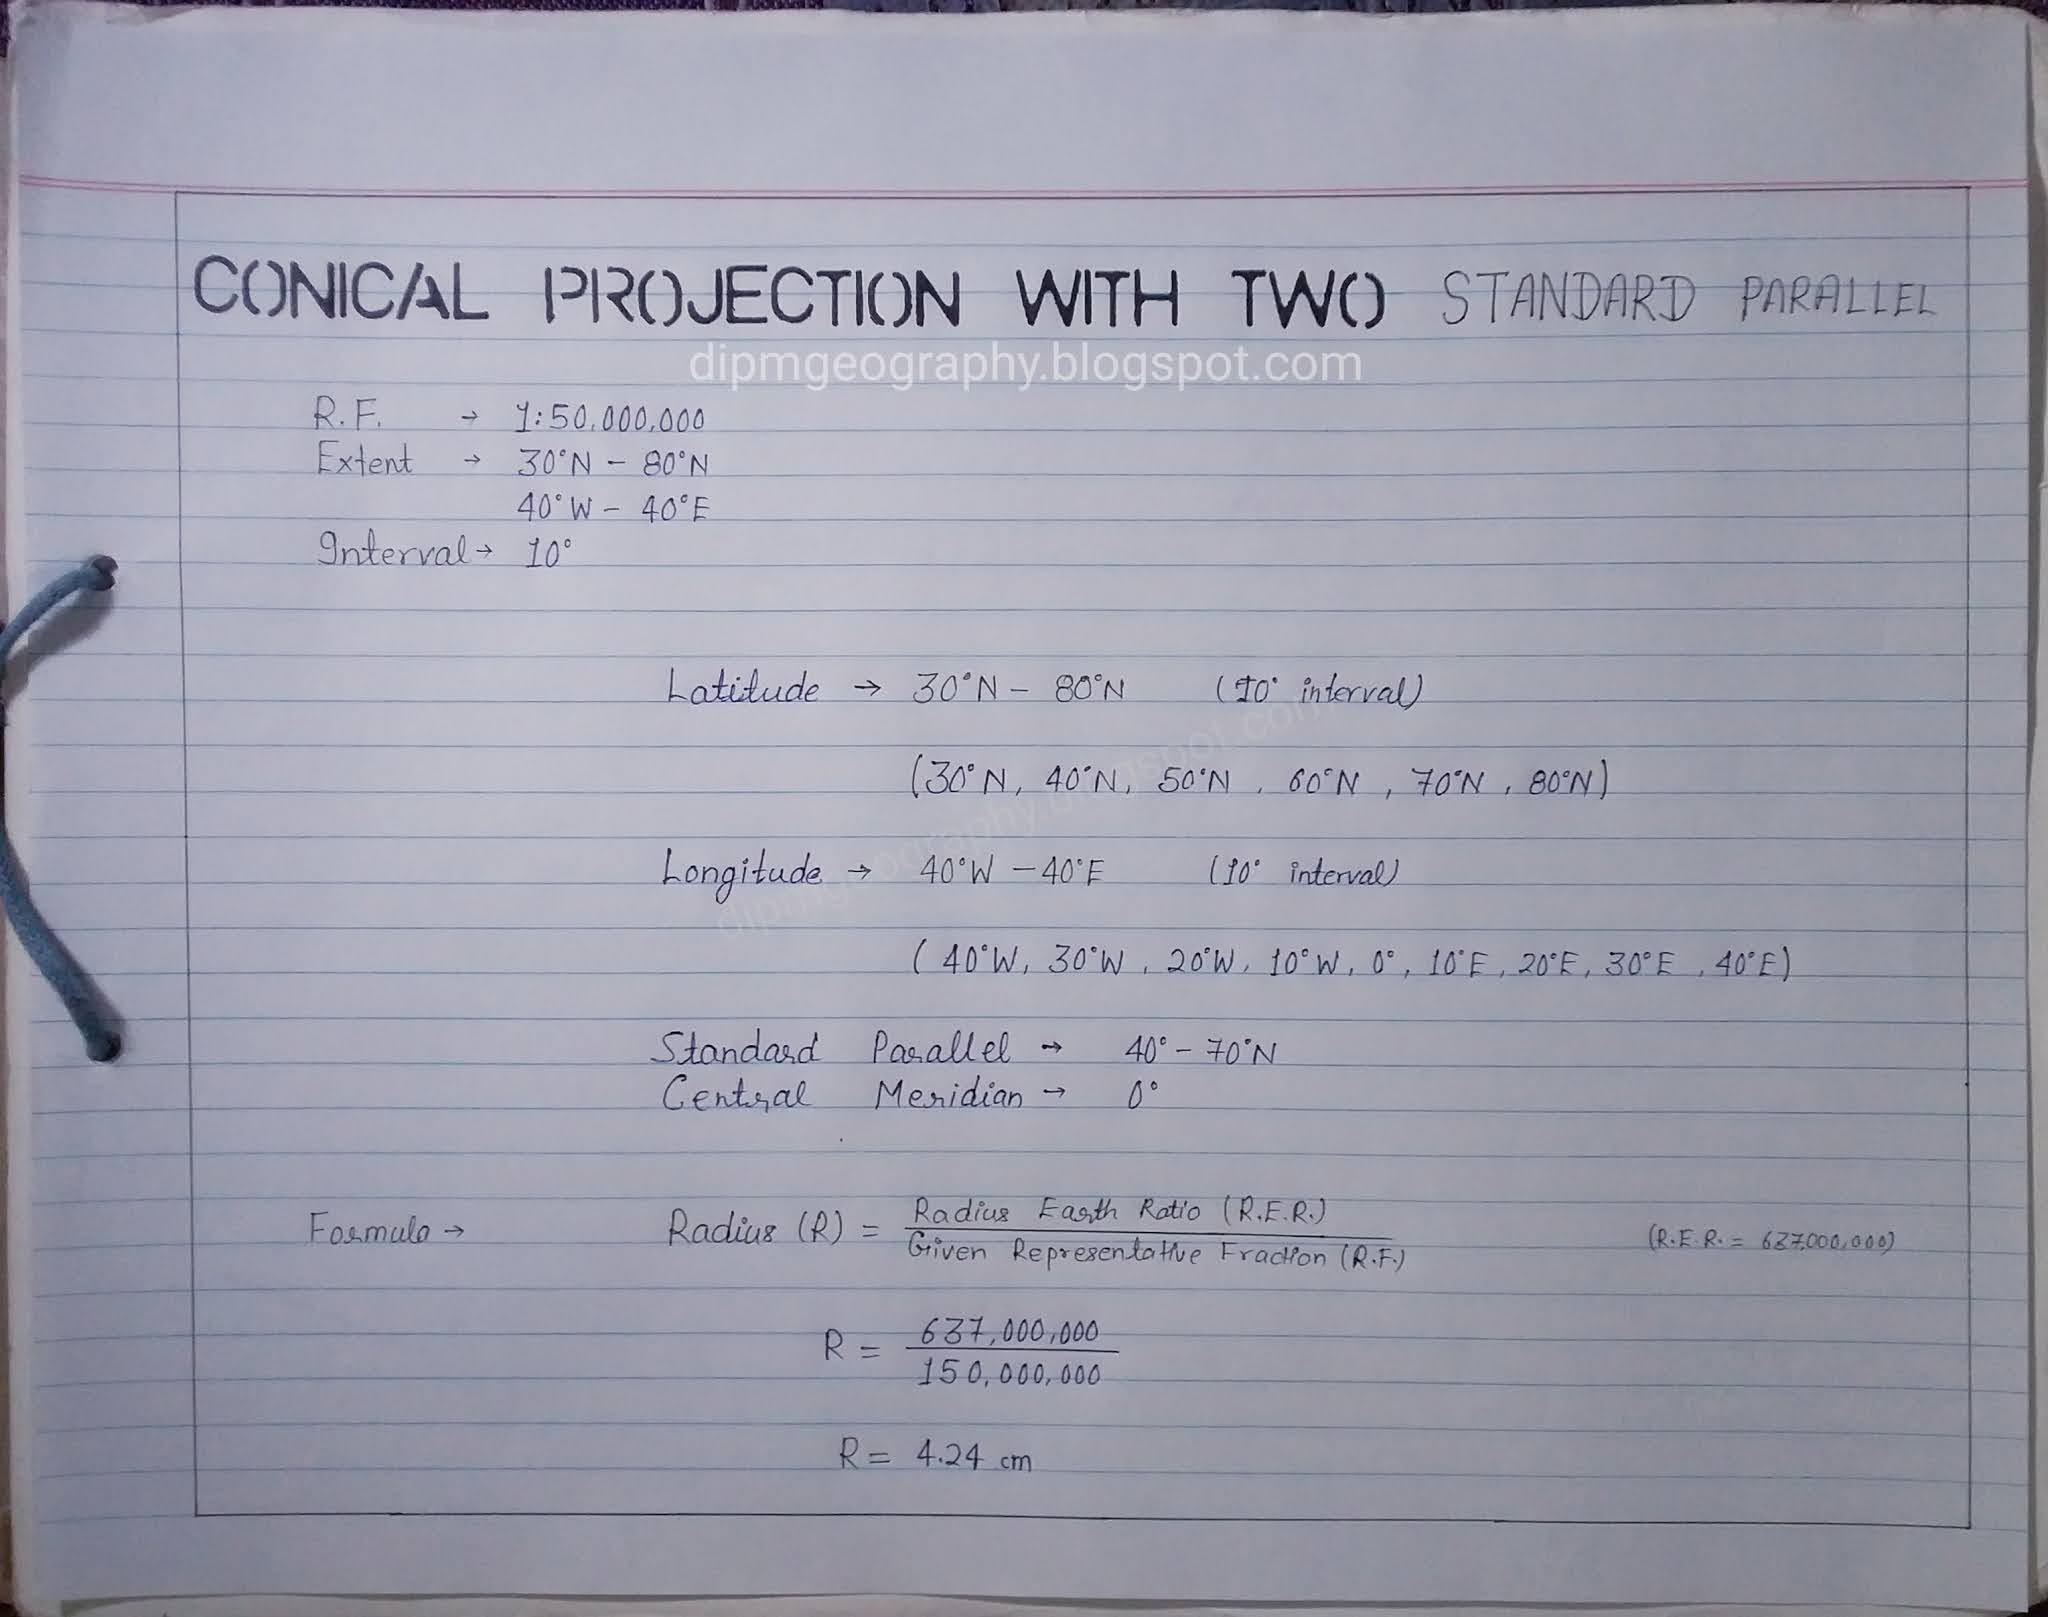 CONICAL PROJECTION WITH TWO STANDARD PARALLEL
dipmgeography.blogspot.com
R.F. → 1:50,000,000
Extent → 30°N - 80°N
40°W - 40°E
Interval → 10°
Latitude → 30°N - 80°N (10° interval)
(30°N, 40°N, 50°N, 60°N, 70°N, 80°N)
Longitude → 40°W - 40°E (10° interval)
dipmgeography.blogspot.com
(40°W, 30°W, 20°W, 10°W, 0°, 10°E, 20°E, 30°E, 40°E)
Standard Parallel → 40° - 70°N
Central Meridian → 0°
Formula → Radius (R) = Radius Earth Ratio (R.E.R.)
Given Representative Fraction (R.F.)
(R.E.R. = 637,000,000)
R = 637,000,000
150,000,000
R = 4.24 cm